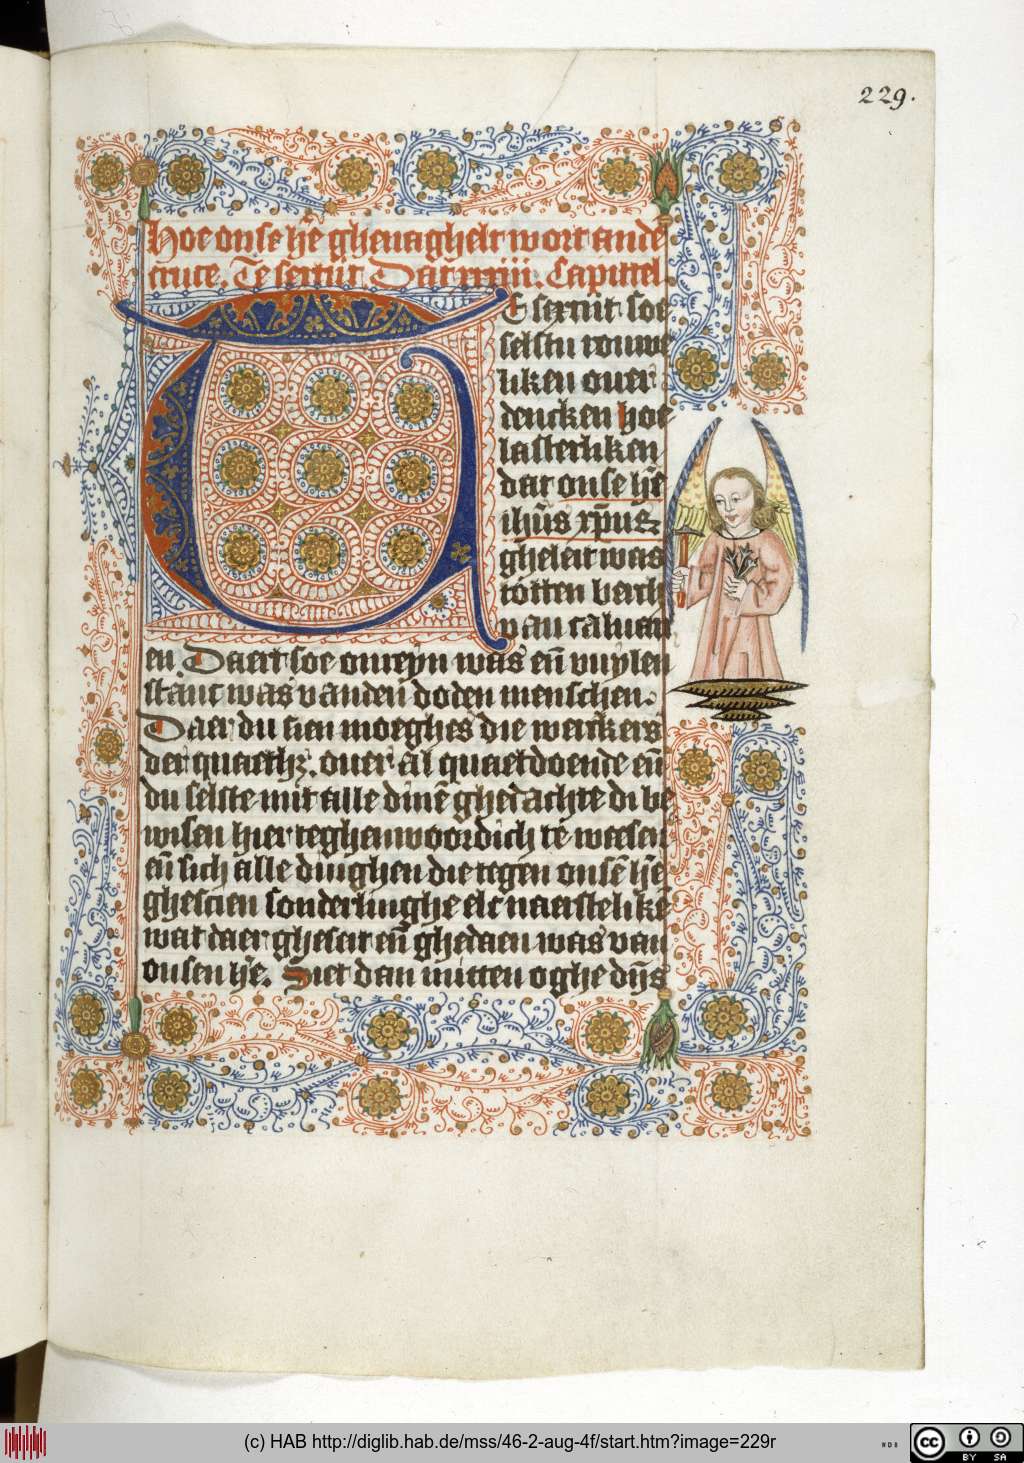 229.
Hoe onse h̄e ghenaghelt wort ande
cruce. Te sextut. Dat xxxiii. Capittel
TE sextut soe
selstu rouwe
liken ouer
dencken hoe
lasterliken
dat onse h̄e
ih̄us xp̄us
gheleit was
totten berch
van caluari
en Daert soe onreyn was eñ vuylen
stanc was vanden doden menschen.
Daer du sien moeghes die werkers
der quaeth;. ouer al quaetdoende eñ
du selste mit alle dinē ghedachte di be
wisen hier teghenwoordich te weesen
eñ sich alle dinghen die tegen onsē h̄e
ghescien sonderlinghe elc naerstelikē
wat daer gheseit eñ ghedaen was van
onsen h̄e. Siet dan mitten oghe dijs
(c) HAB http://diglib.hab.de/mss/46-2-aug-4f/start.htm?image=229r
WDB
cc
BY SA